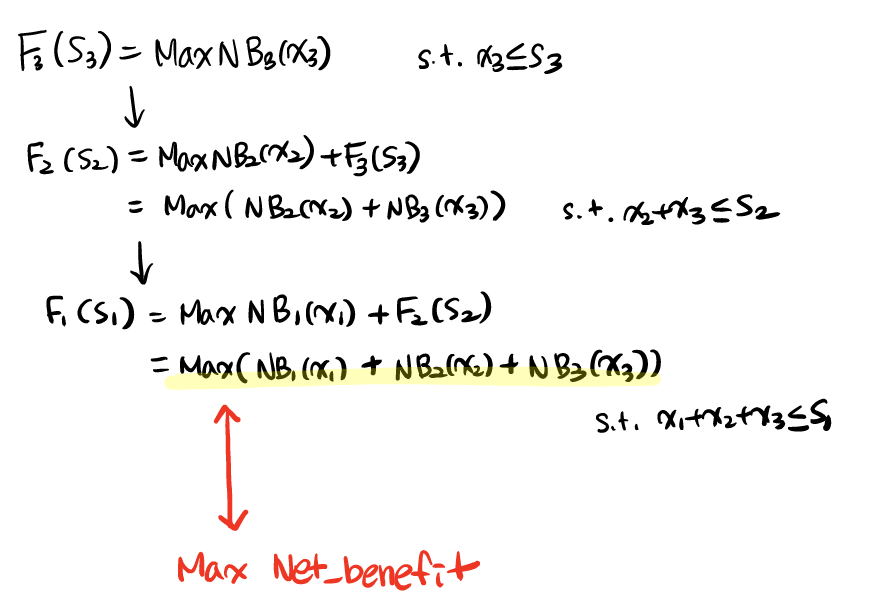 F₃(S₃) = Max NB₃(x₃) s.t. x₃≤S₃
↓
F₂(S₂) = Max NB₂(x₂) + F₃(S₃)
= Max( NB₂(x₂) + NB₃(x₃)) s.t. x₂+x₃≤S₂
↓
F₁(S₁) = Max NB₁(x₁) + F₂(S₂)
= Max( NB₁(x₁) + NB₂(x₂) + NB₃(x₃))
s.t. x₁+x₂+x₃≤S₁
Max Net_benefit